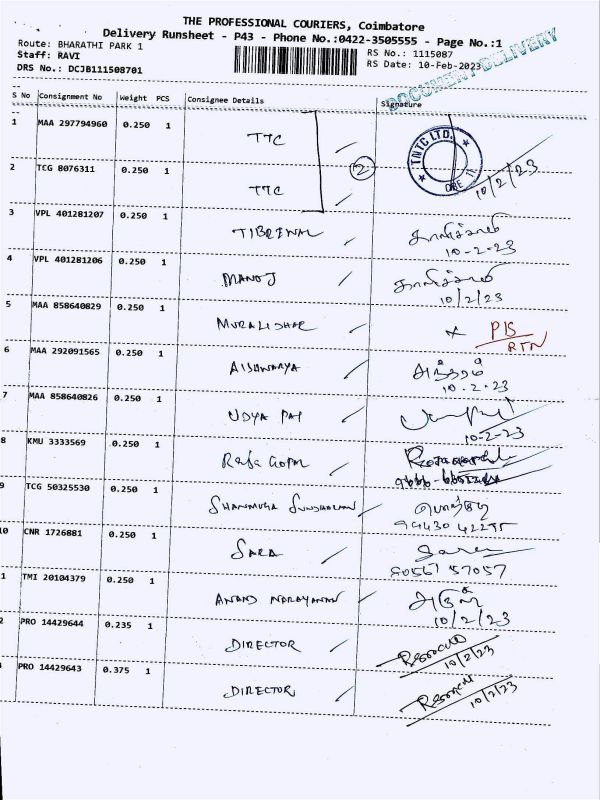 THE PROFESSIONAL COURIERS, Coimbatore
Delivery Runsheet - P43 - Phone No.:0422-3505555 - Page No.:1
Route: BHARATHI PARK 1
RS No.: 1115087
Staff: RAVI
RS Date: 10-Feb-2023
DRS No.: DCJB111508701
DOCUMENT DELIVERY
S No Consignment No Weight PCS Consignee Details Signature
1 MAA 297794960 0.250 1 TTC
TNTC LTD.
2
10/2/23
2 TCG 8076311 0.250 1 TTC
3 VPL 401281207 0.250 1
10-2-23
4 VPL 401281206 0.250 1 MANOJ
10/2/23
5 MAA 858640829 0.250 1 MURALIDHAR
RTN
6 MAA 292091565 0.250 1 AISHWARYA
10.2.23
7 MAA 858640826 0.250 1 UDYA PAI
10-2-23
8 KMU 3333569 0.250 1 Raja Gopal
9 TCG 50325530 0.250 1 SHANMUGA SUNDHARAM
99430 42295
10 CNR 1726881 0.250 1 SARA
Sara
80561 57057
1 TMI 20104379 0.250 1 ANAND NARAYANAN
10/2/23
2 PRO 14429644 0.235 1 DIRECTOR
10/2/23
PRO 14429643 0.375 1 DIRECTOR
10/2/23